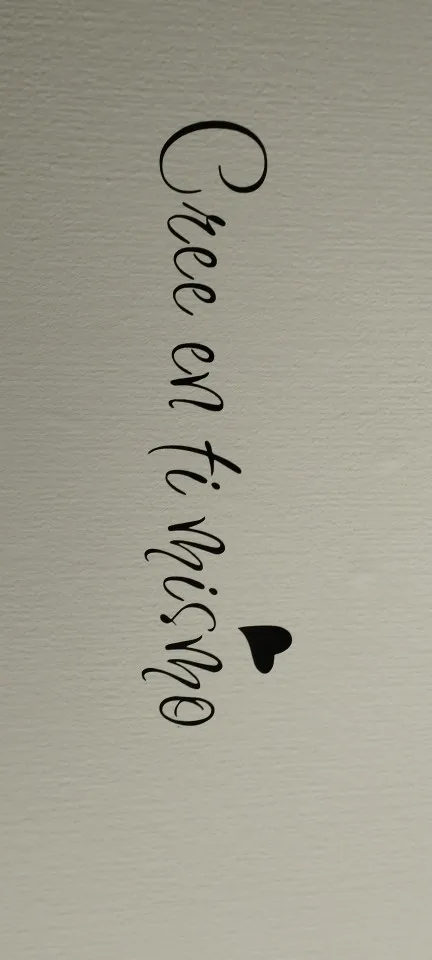 Cree en ti mismo